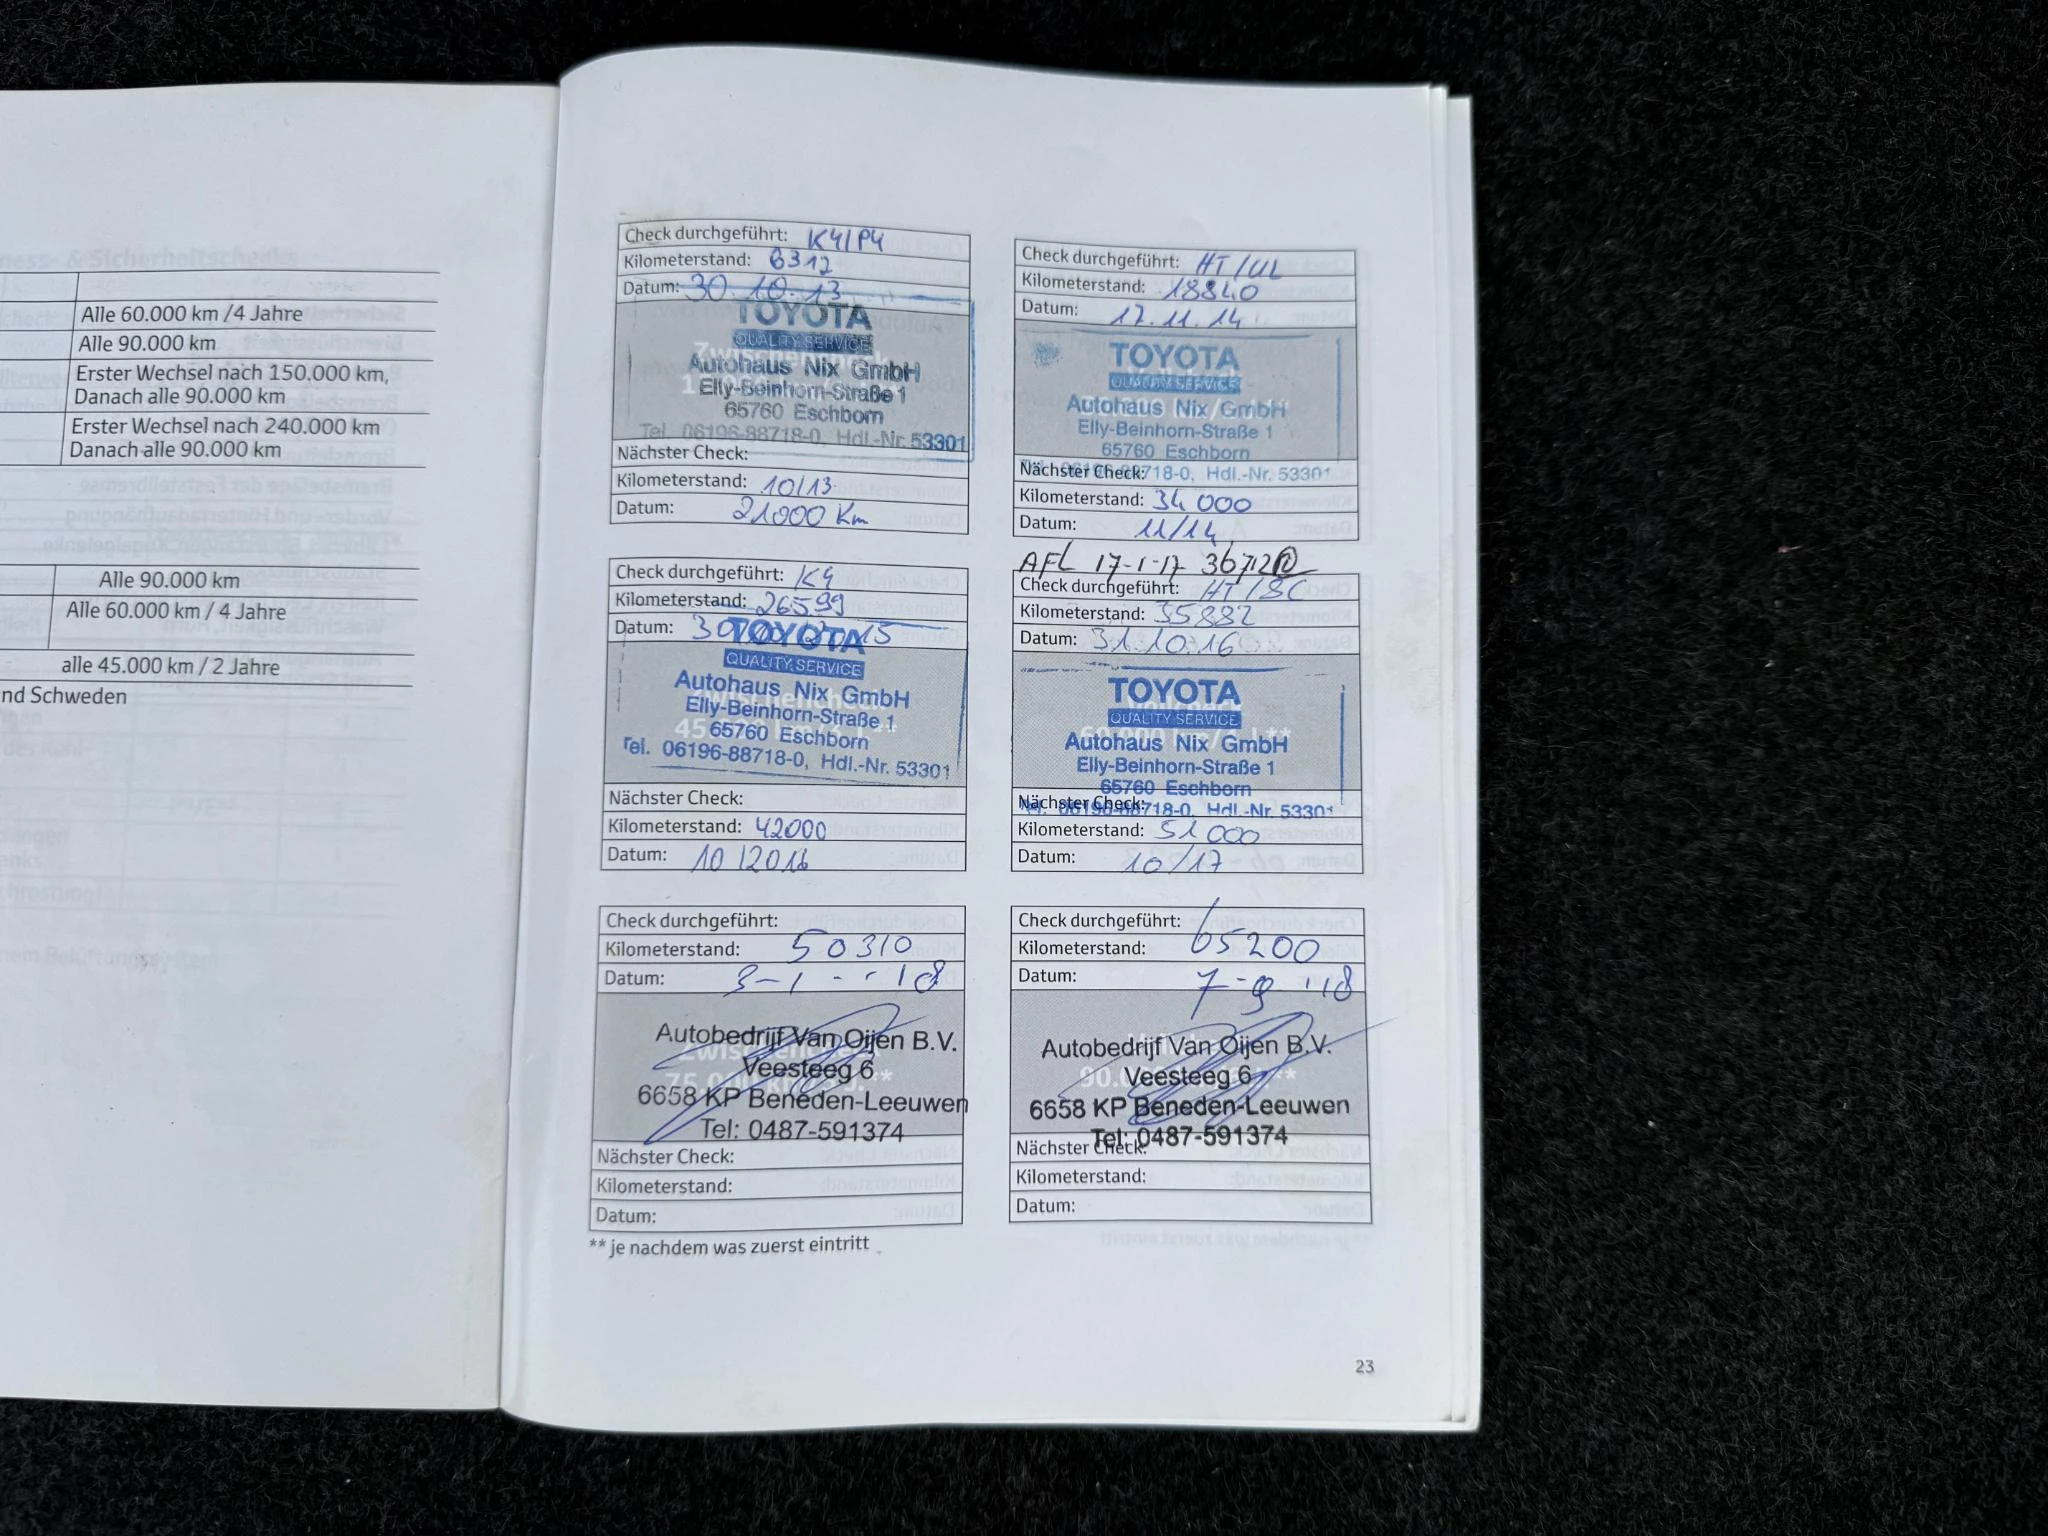 Alle 60.000 km /4 Jahre
Alle 90.000 km
Erster Wechsel nach 150.000 km,
Danach alle 90.000 km
Erster Wechsel nach 240.000 km
Danach alle 90.000 km
Alle 90.000 km
Alle 60.000 km / 4 Jahre
alle 45.000 km / 2 Jahre
nd Schweden
Check durchgeführt: K4/P4
Kilometerstand: 6312
Datum: 30.10.13
TOYOTA
QUALITY SERVICE
Autohaus Nix GmbH
Elly-Beinhorn-Straße 1
65760 Eschborn
Tel. 06196-88718-0, Hdl.-Nr. 53301
Nächster Check:
Kilometerstand: 10/13
Datum: 21000 Km
Check durchgeführt: HT/UL
Kilometerstand: 18840
Datum: 17.11.14
TOYOTA
QUALITY SERVICE
Autohaus Nix GmbH
Elly-Beinhorn-Straße 1
65760 Eschborn
Tel. 06196-88718-0, Hdl.-Nr. 53301
Nächster Check:
Kilometerstand: 34000
Datum: 11/14
Check durchgeführt: K4
Kilometerstand: 26599
Datum:
TOYOTA
QUALITY SERVICE
Autohaus Nix GmbH
Elly-Beinhorn-Straße 1
65760 Eschborn
Tel. 06196-88718-0, Hdl.-Nr. 53301
Nächster Check:
Kilometerstand: 42000
Datum: 10/2016
AFL 17-1-17
Check durchgeführt: HT/SC
Kilometerstand: 35882
Datum: 31.10.16
TOYOTA
QUALITY SERVICE
Autohaus Nix GmbH
Elly-Beinhorn-Straße 1
65760 Eschborn
Tel. 06196-88718-0, Hdl.-Nr. 53301
Nächster Check:
Kilometerstand: 51000
Datum: 10/17
Check durchgeführt:
Kilometerstand: 50310
Datum: 3-1-'18
Zwischencheck
Autobedrijf Van Oijen B.V.
Veesteeg 6
6658 KP Beneden-Leeuwen
Tel: 0487-591374
Nächster Check:
Kilometerstand:
Datum:
Check durchgeführt:
Kilometerstand: 65200
Datum: 7-9-'18
Autobedrijf Van Oijen B.V.
Veesteeg 6
6658 KP Beneden-Leeuwen
Tel: 0487-591374
Nächster Check:
Kilometerstand:
Datum:
** je nachdem was zuerst eintritt
23